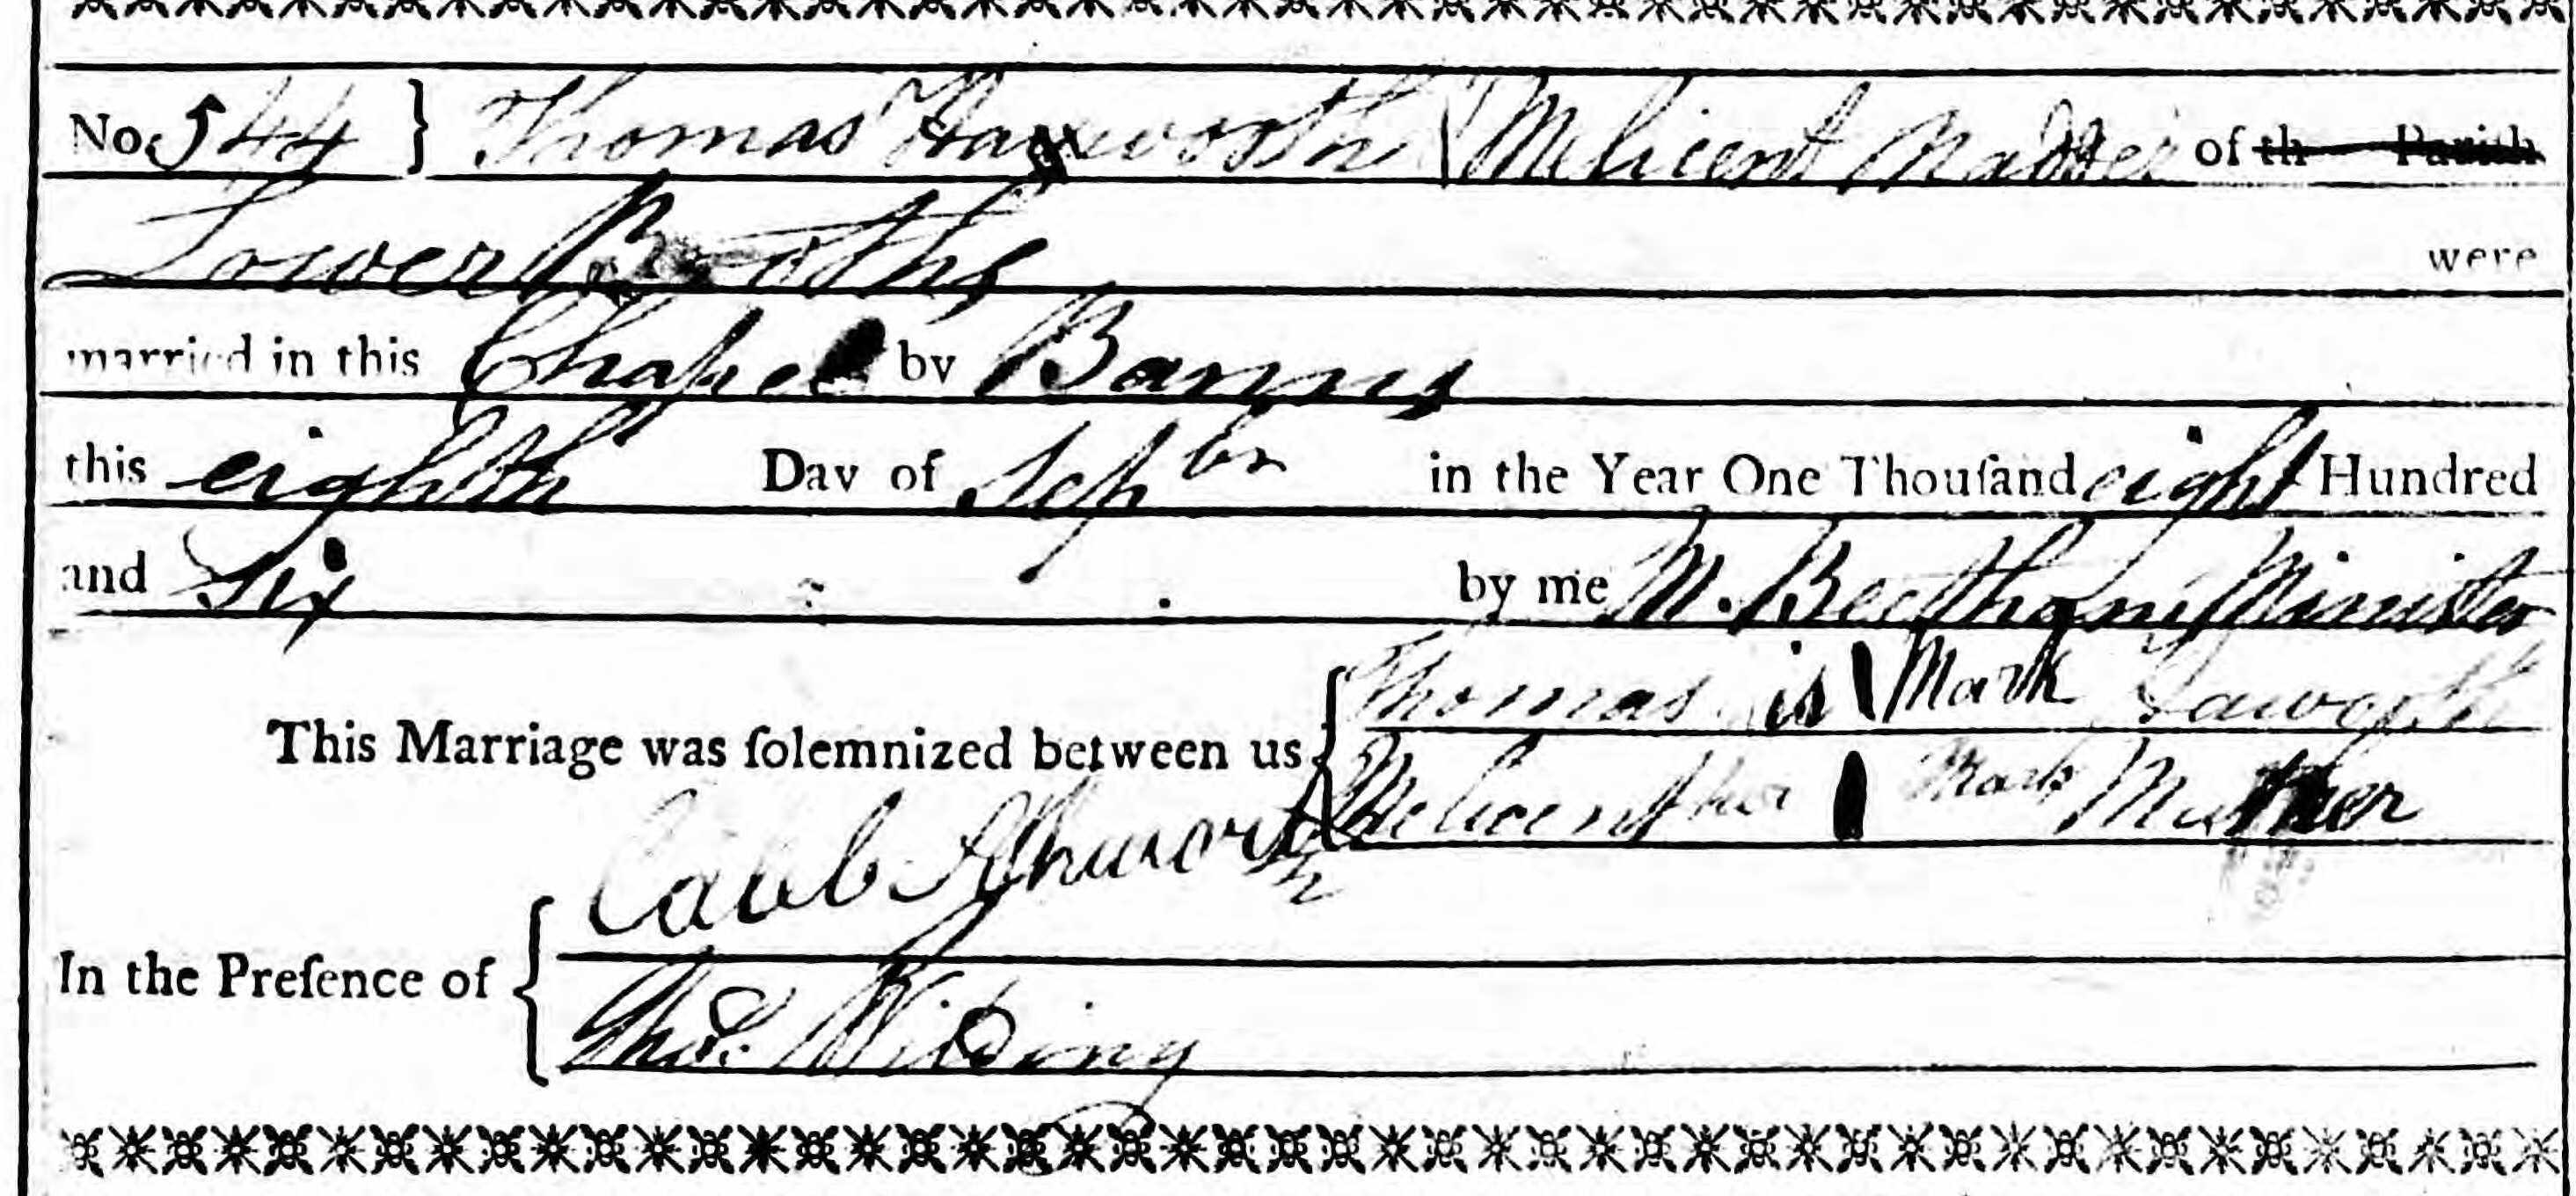 No. 544 } Thomas Haxworth Melicent Madder of th Parish
Lower Booths were
married in this Chapel by Banns
this eighth Day of Sepbr in the Year One Thouſand eight Hundred
and Six by me Minister
This Marriage was ſolemnized between us { Thomas is Mark Haworth
Melicent her Mark
Caleb Ashworth
In the Preſence of {
Thos. Wilding